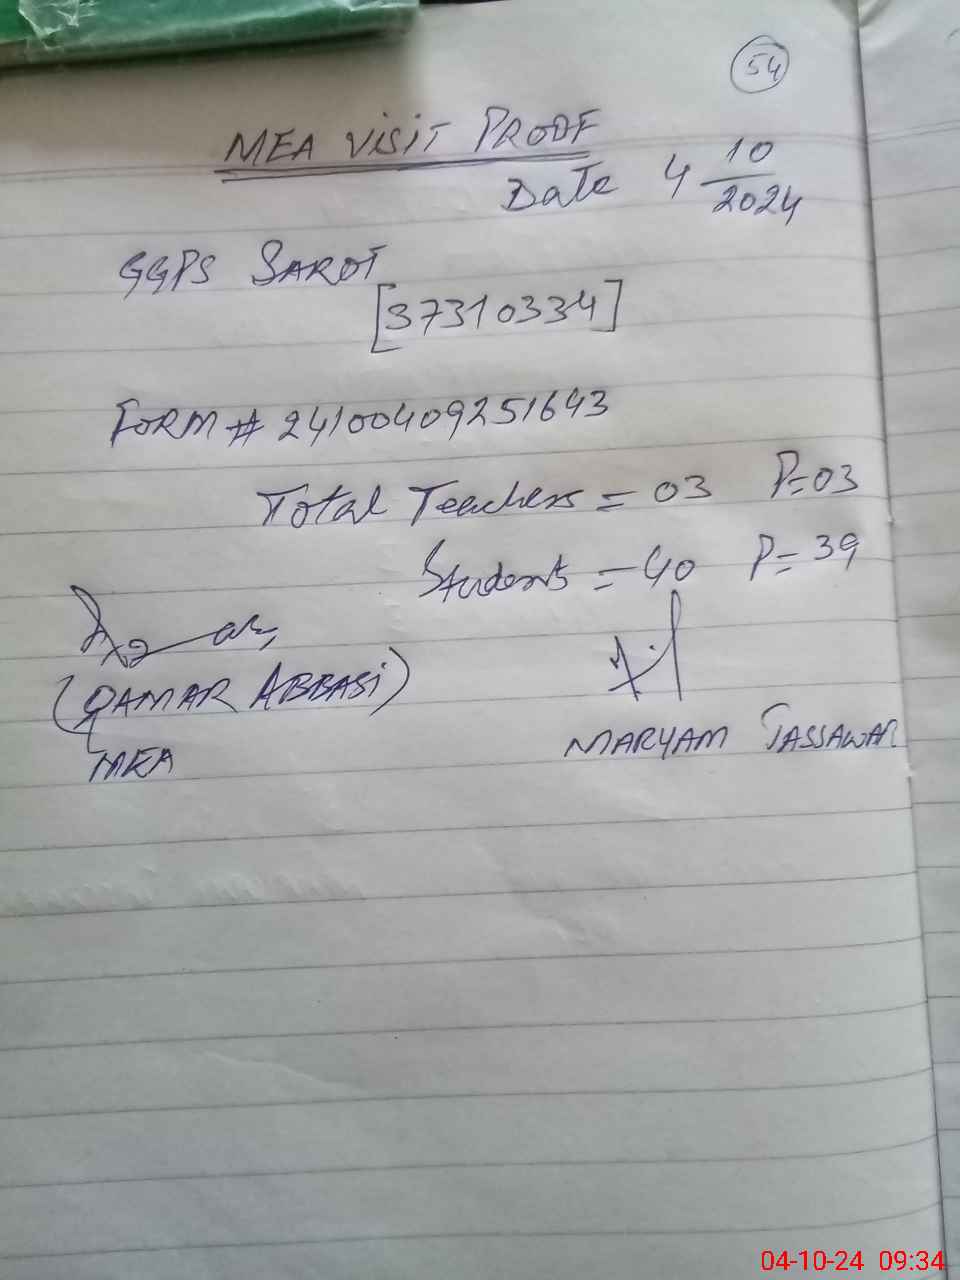 54
MEA VISIT PROOF
Date 4 10/2024
GGPS SAROT
[37310334]
FORM # 24100409251643
Total Teachers = 03 P=03
Students = 40 P= 39
(QAMAR ABBASI)
MEA
MARYAM TASSAWAR
04-10-24 09:34